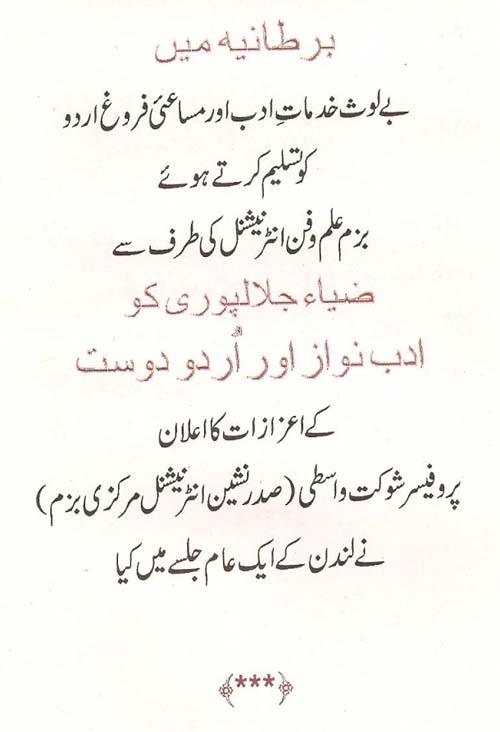 برطانیہ میں
بے لوث خدماتِ ادب اور مساعیٔ فروغ اردو
کو تسلیم کرتے ہوئے
بزم علم و فن انٹرنیشنل کی طرف سے
ضیاء جلالپوری کو
ادب نواز اور اُردو دوست
کے اعزازات کا اعلان
پروفیسر شوکت واسطی (صدر نشین انٹرنیشنل مرکزی بزم)
نے لندن کے ایک عام جلسے میں کیا
***